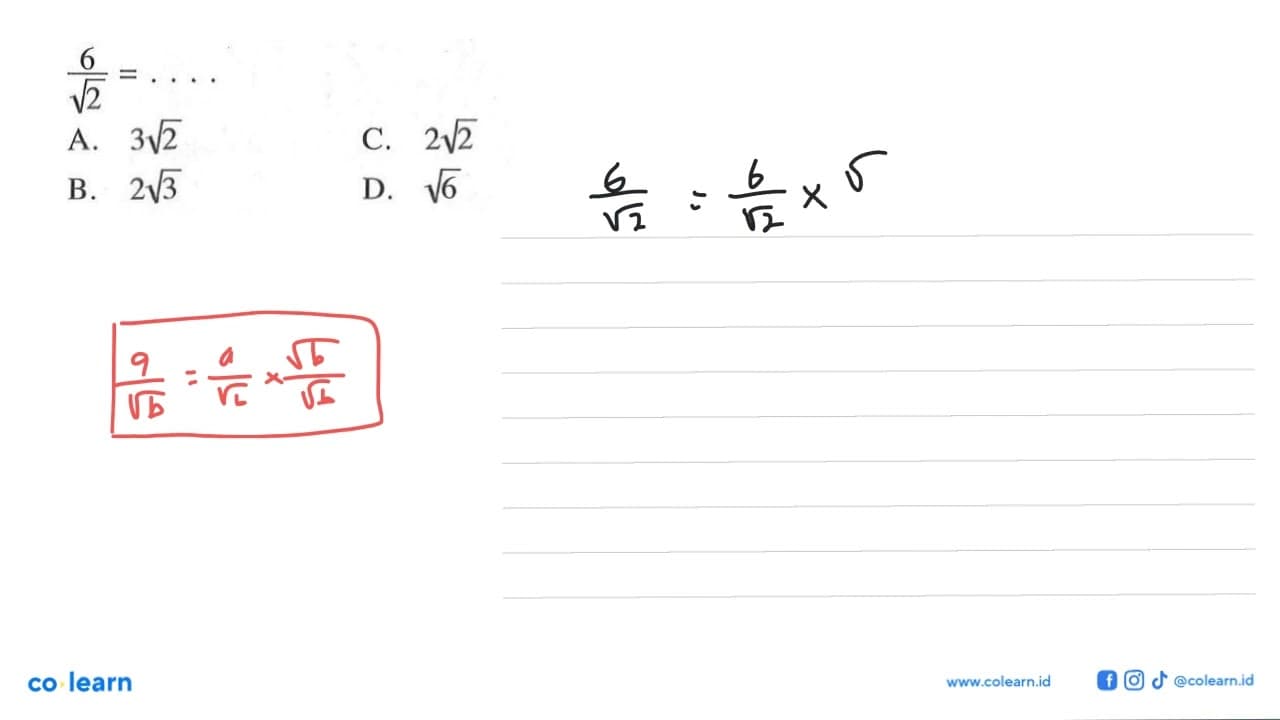 6/√2 = . . . .
A. 3√2 C. 2√2
B. 2√3 D. √6
6/√2 = 6/√2 × √
a/√b = a/√b × √b/√b
co learn
www.colearn.id @colearn.id